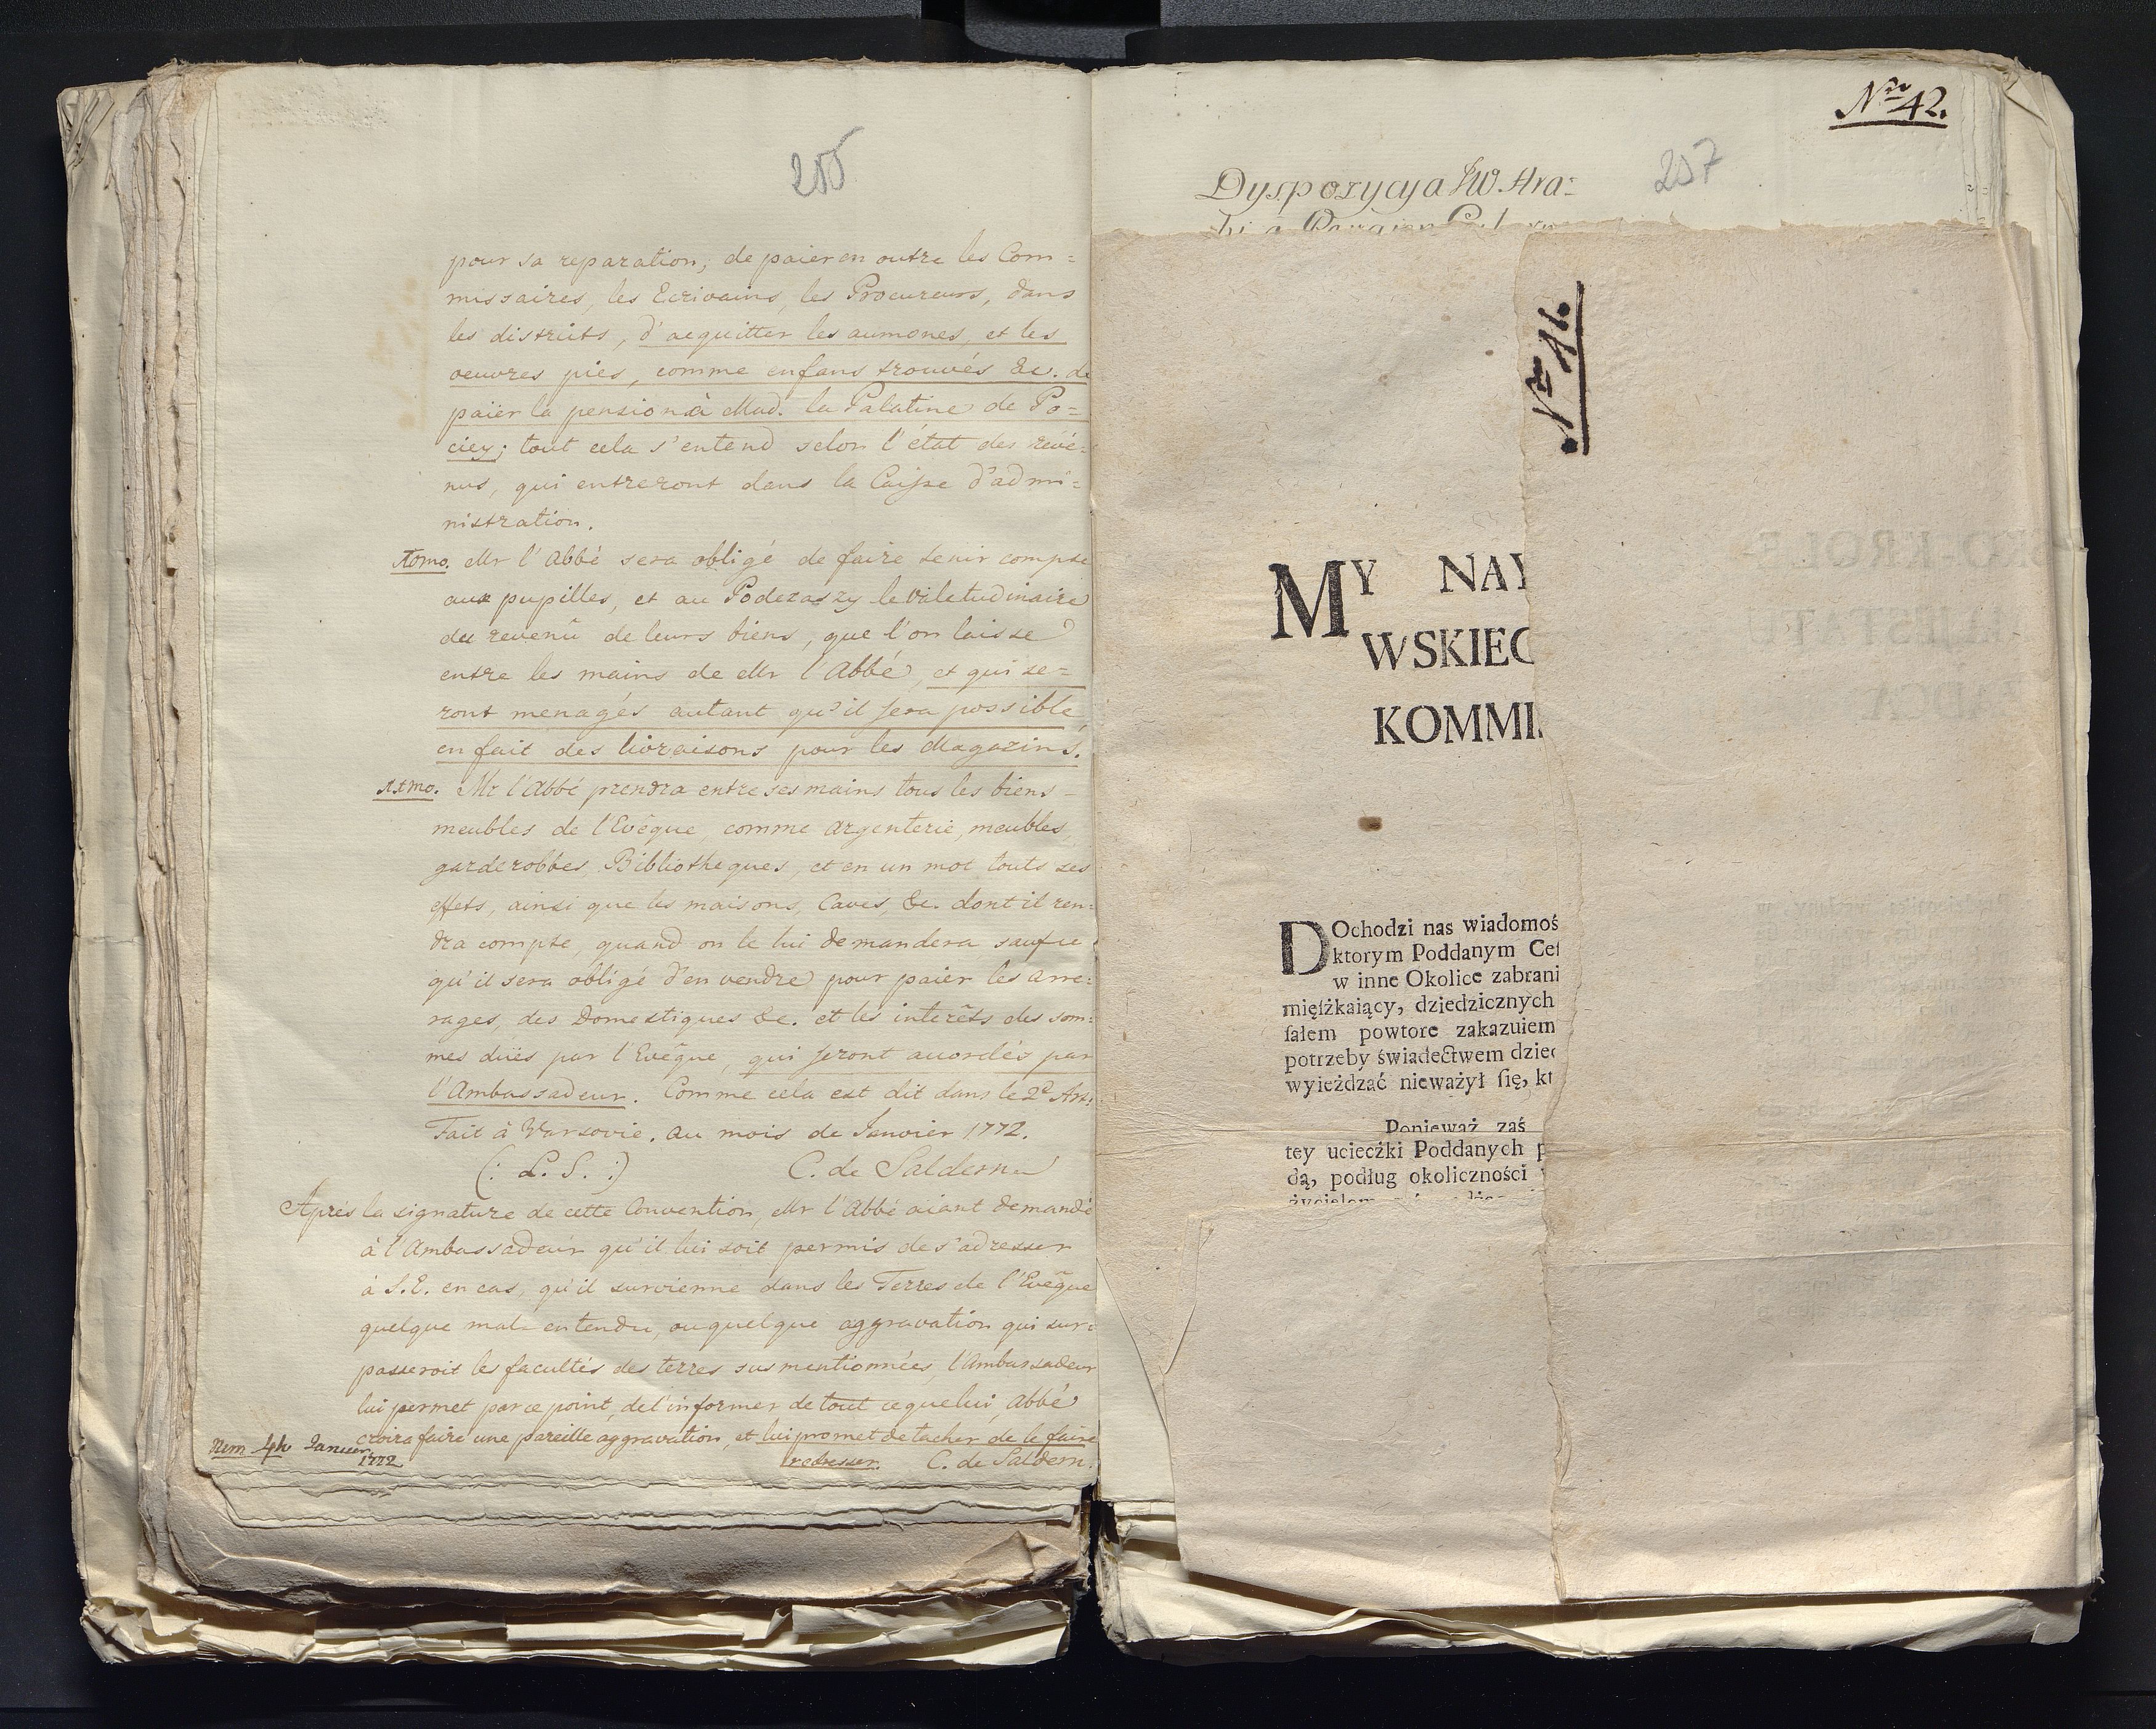 255
pour sa reparation, de paier en outre les Com=
missaires, les Ecrivains, les Procureurs, dans
les distruts, d'acquitter les aumones, et les
oeuvres pies, comme enfans trouvés &c. de
païer la pension à Mad. la Palatine de Po=
ciey; tout cela s'entend selon l'état des revé=
nus, qui entreront dans la Caisse d'admi=
nistration.
10mo. Mr l'Abbé sera obligé de faire tenir compte
aux pupilles, et au Podczaszy le valetudinaire
du revenû de leurs biens, que l'on laisse
entre les mains de Mr l'Abbé, et qui se=
ront menagés autant qu'il sera possible
en fait des livraisons pour les Magazins.
11mo. Mr l'Abbé prendra entre ses mains tous les biens-
meubles de l'Evêque, comme argenterie, meubles,
garderobbes, Bibliotheques, et en un mot touts ses
effets, ainsi que les maisons, Caves, &c. dont il ren=
dra compte, quand on le lui demandera sauf ce
qu'il sera obligé d'en vendre pour paier les arre=
rages, des Domestiques &c. et les interêts des som=
mes duës par l'Evêque, qui seront accordés par
l'Ambassadeur. Comme cela est dit dans le 2d Art:
Fait à Varsovie. au mois de Janvier 1772.
(: L. S. :) C. de Saldern
Après la signature de cette Convention, Mr l'Abbé aiant demandé
à l'Ambassadeur qu'il lui soit permis de s'adresser
à S.E. en cas, qu'il survienne dans les Terres de l'Evêque
quelque mal-entendu, ou quelque aggravation qui sur=
passeroit les facultés des terres sus mentionnées, l'Ambassadeur
lui permet par ce point, de l'informer de tout ce que lui, Abbé
croira faire une pareille aggravation, et lui promet de tacher de le faire
redresser. C. de Saldern.
4ta Januer
1772
Nro 42.
257
Dyspozycya JW. Hra=
Nro 41.
MY NAY
WSKIEG
KOMMI
DOchodzi nas wiadomoś
ktorym Poddanym Ceſ
w inne Okolice zabrani
mięſżkaiący, dziedzicznych
ſałem powtore zakazuiem
potrzeby świadectwem dzied
wyieżdzać nieważył ſię, kt
Ponieważ zaś
tey ucieczki Poddanych p
dą, podług okoliczności